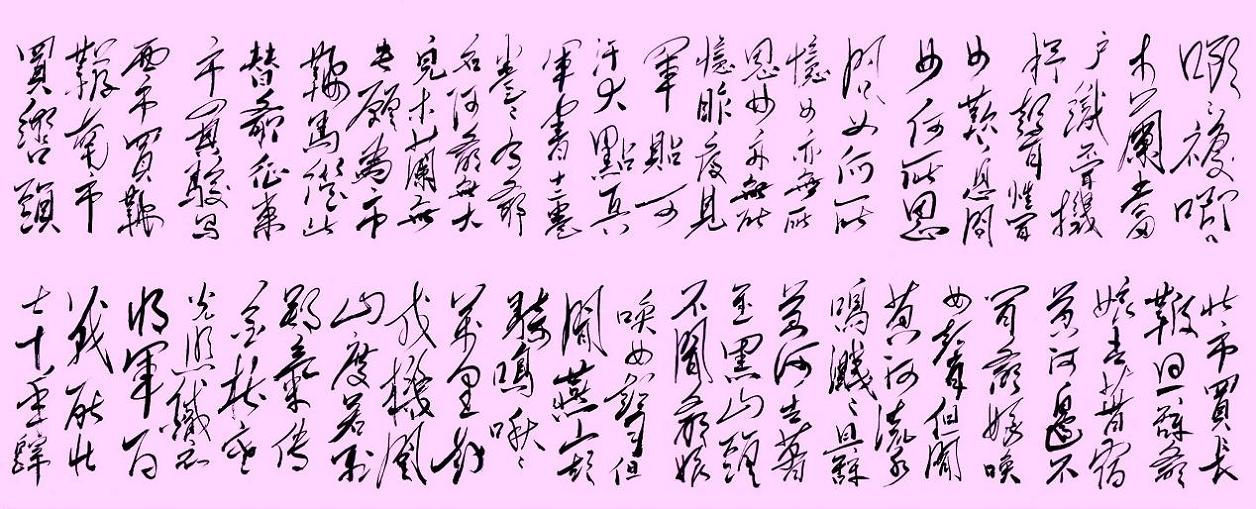 唧〻復唧〻
木蘭當
户織不聞機
杼聲惟聞
女歎息問
女何所思
問女何所
憶女亦無所
思女亦無所
憶昨夜見
軍貼可
汗大點兵
軍書十二卷
卷〻有爺
名阿爺無大
兒木蘭無
長願為市
鞍馬從此
替爺征東
市買駿馬
西市買鞍
韉南市
買轡頭
北市買長
鞭旦辭爺
孃去暮宿
黃河邊不
聞爺孃喚
女聲但聞
黃河流水
鳴濺〻旦辭
黃河去暮
至黑山頭
不聞爺孃
喚女聲但
聞燕山胡
騎鳴啾〻
萬里赴
戎機關
山度若飛
朔氣傳
金柝寒
光照鐵衣
將軍百
戰死壯
士十年歸